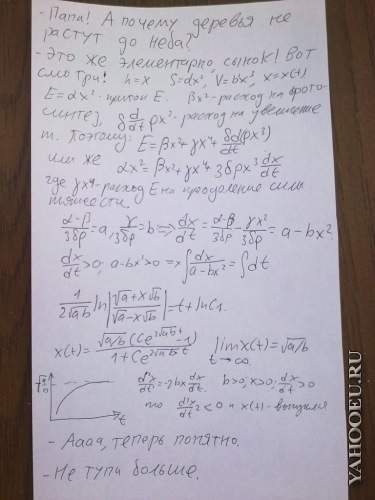 - Папа! А почему деревья не
растут до неба?
- Это же элементарно сынок! Вот
смотри! h=x S=αx², V=bx³, x=x(t)
E=αx² - приток E. βx² - расход на фото-
синтез, δ d/dt ρx³ - расход на увеличение
m. Поэтому: E=βx²+γx⁴+δd/dt(ρx³)
или же αx²=βx²+γx⁴+3δρx² dx/dt
где γx⁴ - расход E на преодоление силы
тяжести.
(α-β)/3δρ=a, γ/3δρ=b ⟹ dx/dt=(α-β)/3δρ - γx²/3δρ = a-bx².
dx/dt>0; a-bx²>0 ⟹ ∫dx/(a-bx²)=∫dt
1/(2√ab) ln|(√a+x√b)/(√a-x√b)|=t+lnC₁.
x(t)=√(a/b)(Ce^(2√ab t)-1)/(1+Ce^(2√ab t)) lim x(t)=√a/b
t→∞.
√(a/b) d²x/dt²=-2bx dx/dt. b>0; x>0; dx/dt>0
t то d²x/dt²<0 и x(t) - выпуклая
- Аааа, теперь понятно.
- Не тупи больше.
YAHOOEU.RU